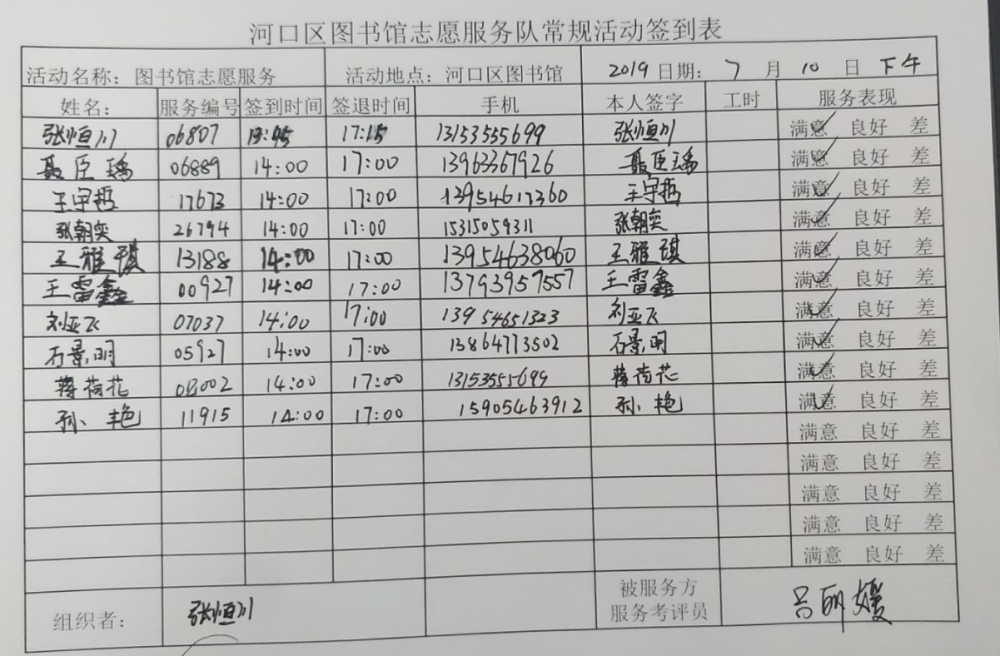 河口区图书馆志愿服务队常规活动签到表
活动名称：图书馆志愿服务 活动地点：河口区图书馆 2019 日期：7 月 10 日 下午
姓名： 服务编号 签到时间 签退时间 手机 本人签字 工时 服务表现
张恒川 06807 13:45 17:15 13153555699 张恒川 满意 良好 差
聂臣瑀 06889 14:00 17:00 13963367926 聂臣瑀 满意 良好 差
王宇哲 17673 14:00 17:00 13954617360 王宇哲 满意 良好 差
张朝奕 26794 14:00 17:00 15315059311 张朝奕 满意 良好 差
王雅琪 13188 14:00 17:00 13954638060 王雅琪 满意 良好 差
王雷鑫 00927 14:00 17:00 13793957557 王雷鑫 满意 良好 差
刘亚飞 07037 14:00 17:00 13954651323 刘亚飞 满意 良好 差
石景明 05927 14:00 17:00 13864773502 石景明 满意 良好 差
蒋荷花 08002 14:00 17:00 13153555699 蒋荷花 满意 良好 差
孙艳 11915 14:00 17:00 15905463912 孙艳 满意 良好 差
满意 良好 差
满意 良好 差
满意 良好 差
满意 良好 差
满意 良好 差
组织者： 张恒川 被服务方
服务考评员 吕丽媛